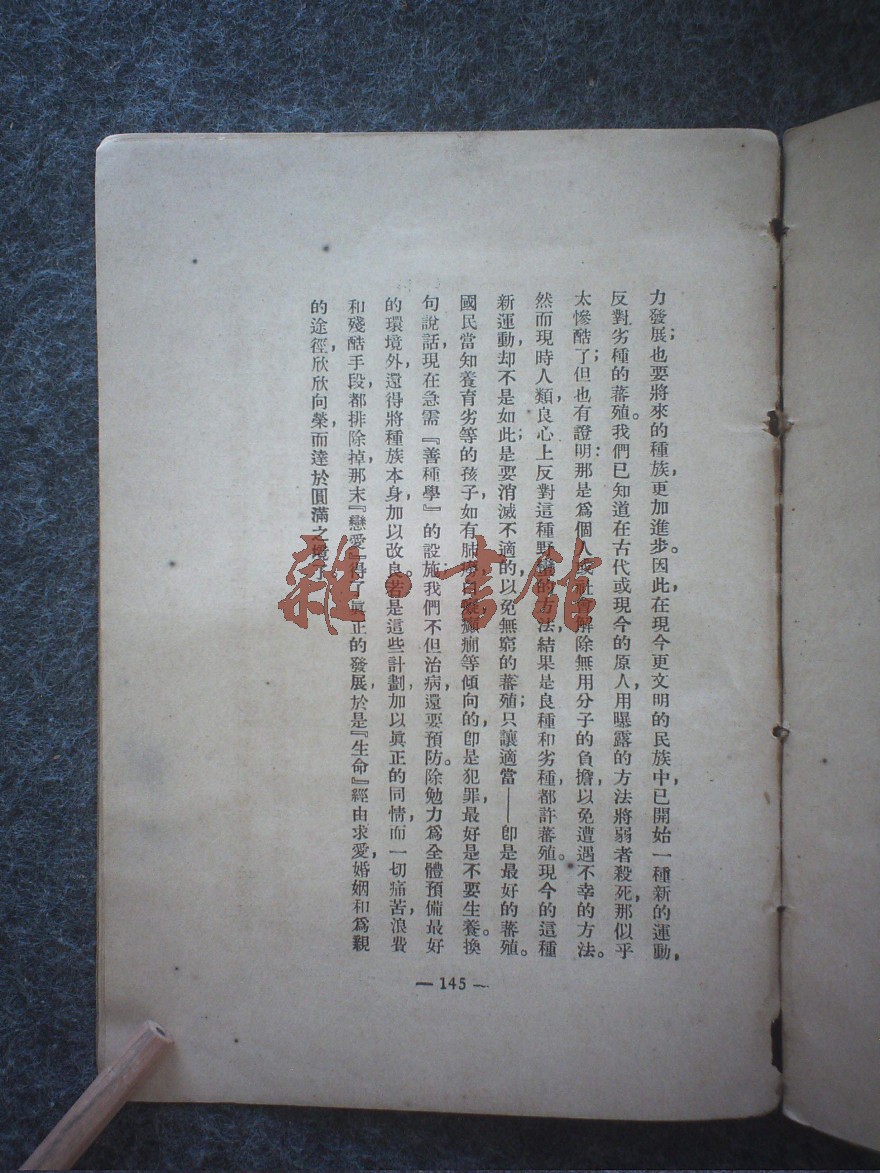 力發展；也要將來的種族，更加進步。因此在現今更文明的民族中，已開始一種新的運動，
反對劣種的蕃殖。我們已知道在古代或現今的原人，用曝露的方法將弱者殺死，那似乎
太慘酷了；但也有證明：那是爲個人或社會解除無用分子的負擔，以免遭遇不幸的方法。
然而現時人類良心上反對這種野蠻的方法，結果是良種和劣種，都許蕃殖。現今的這種
新運動，却不是如此；是要消滅不適的，以免無窮的蕃殖；只讓適當——卽是最好的蕃殖。
國民當知養育劣等的孩子，如有肺癆白癡癲癇等傾向的，卽是犯罪，最好是不要生養。換
句說話，現在急需『善種學』的設施；我們不但治病，還要預防。除勉力爲全體預備最好
的環境外，還得將種族本身，加以改良。若是這些計劃，加以眞正的同情，而一切痛苦，浪費
和殘酷手段，都排除掉，那末『戀愛』得了眞正的發展，於是『生命』經由求愛，婚姻和爲親
的途徑，欣欣向榮，而達於圓滿之境了
— 145 —
雜·書館